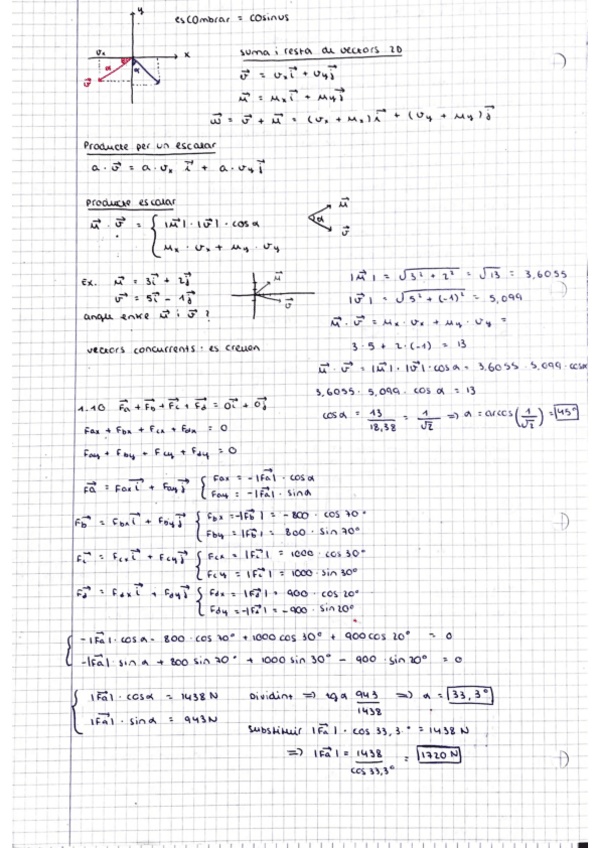 y
escombrar = cosinus
x
vx
α
α
v⃗
suma i resta de vectors 2D
v⃗ = vx i⃗ + vy j⃗
μ⃗ = μx i⃗ + μy j⃗
w⃗ = v⃗ + μ⃗ = (vx + μx) i⃗ + (vy + μy) j⃗
Producte per un escalar
a · v⃗ = a · vx i⃗ + a · vy j⃗
Producte escalar
μ⃗ · v⃗ = { |μ⃗| · |v⃗| · cos α
μx · vx + μy · vy
μ⃗
α
v⃗
Ex. μ⃗ = 3i⃗ + 2j⃗
v⃗ = 5i⃗ - 1j⃗
angle entre μ⃗ i v⃗ ?
μ⃗
v⃗
vectors concurrents : es creuen
|μ⃗| = √3² + 2² = √13 = 3,6055
|v⃗| = √5² + (-1)² = 5,099
μ⃗ · v⃗ = μx · vx + μy · vy =
3 · 5 + 2 · (-1) = 13
μ⃗ · v⃗ = |μ⃗| · |v⃗| · cos α = 3,6055 · 5,099 · cos α
3,6055 · 5,099 · cos α = 13
cos α = 13/18,38 = 1/√2 => α = arccos(1/√2) = 45°
1.10. Fa⃗ + Fb⃗ + Fc⃗ + Fd⃗ = 0i⃗ + 0j⃗
Fax + Fbx + Fcx + Fdx = 0
Fay + Fby + Fcy + Fdy = 0
Fa⃗ = Fax i⃗ + Fay j⃗ { Fax = -|Fa⃗| · cos α
Fay = -|Fa⃗| · sin α
Fb⃗ = Fbx i⃗ + Fby j⃗ { Fbx = -|Fb⃗| = -800 · cos 70°
Fby = |Fb⃗| = 800 · sin 70°
Fc⃗ = Fcx i⃗ + Fcy j⃗ { Fcx = |Fc⃗| = 1000 · cos 30°
Fcy = |Fc⃗| = 1000 · sin 30°
Fd⃗ = Fdx i⃗ + Fdy j⃗ { Fdx = |Fd⃗| = 900 · cos 20°
Fdy = -|Fd⃗| = -900 · sin 20°
{ -|Fa⃗| · cos α - 800 · cos 70° + 1000 cos 30° + 900 cos 20° = 0
-|Fa⃗| · sin α + 800 sin 70° + 1000 sin 30° - 900 · sin 20° = 0
{ |Fa⃗| · cos α = 1438 N
|Fa⃗| · sin α = 943 N
Dividint => tg α 943/1438 => α = 33,3°
Substituir |Fa⃗| · cos 33,3° = 1438 N
=> |Fa⃗| = 1438/cos 33,3° = 1720 N